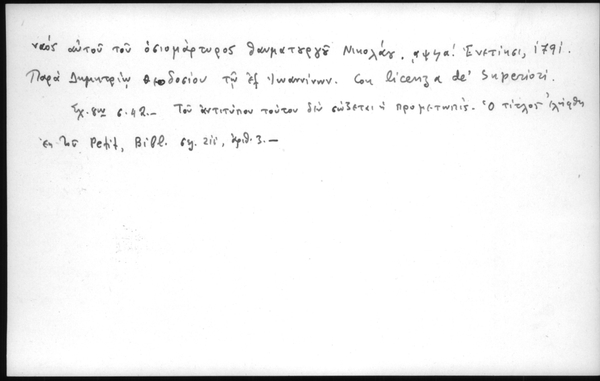 ναός αὐτοῦ τοῦ ὁσιομάρτυρος θαυματουργοῦ Νικολάου. ͵αψϟα! Ἐνετίησι, 1791.
Παρὰ Δημητρίῳ Θεοδοσίου τῷ ἐξ Ἰωαννίνων. Con licenza de' Superiori.
Σχ. 8ον σ. 42.— Τοῦ ἀντιτύπου τούτου δὲν σώζεται ἡ προμετωπίς. Ὁ τίτλος ἐλήφθη
ἐκ τοῦ Petit, Bibl. σχ. 212, ἀριθ. 3.—